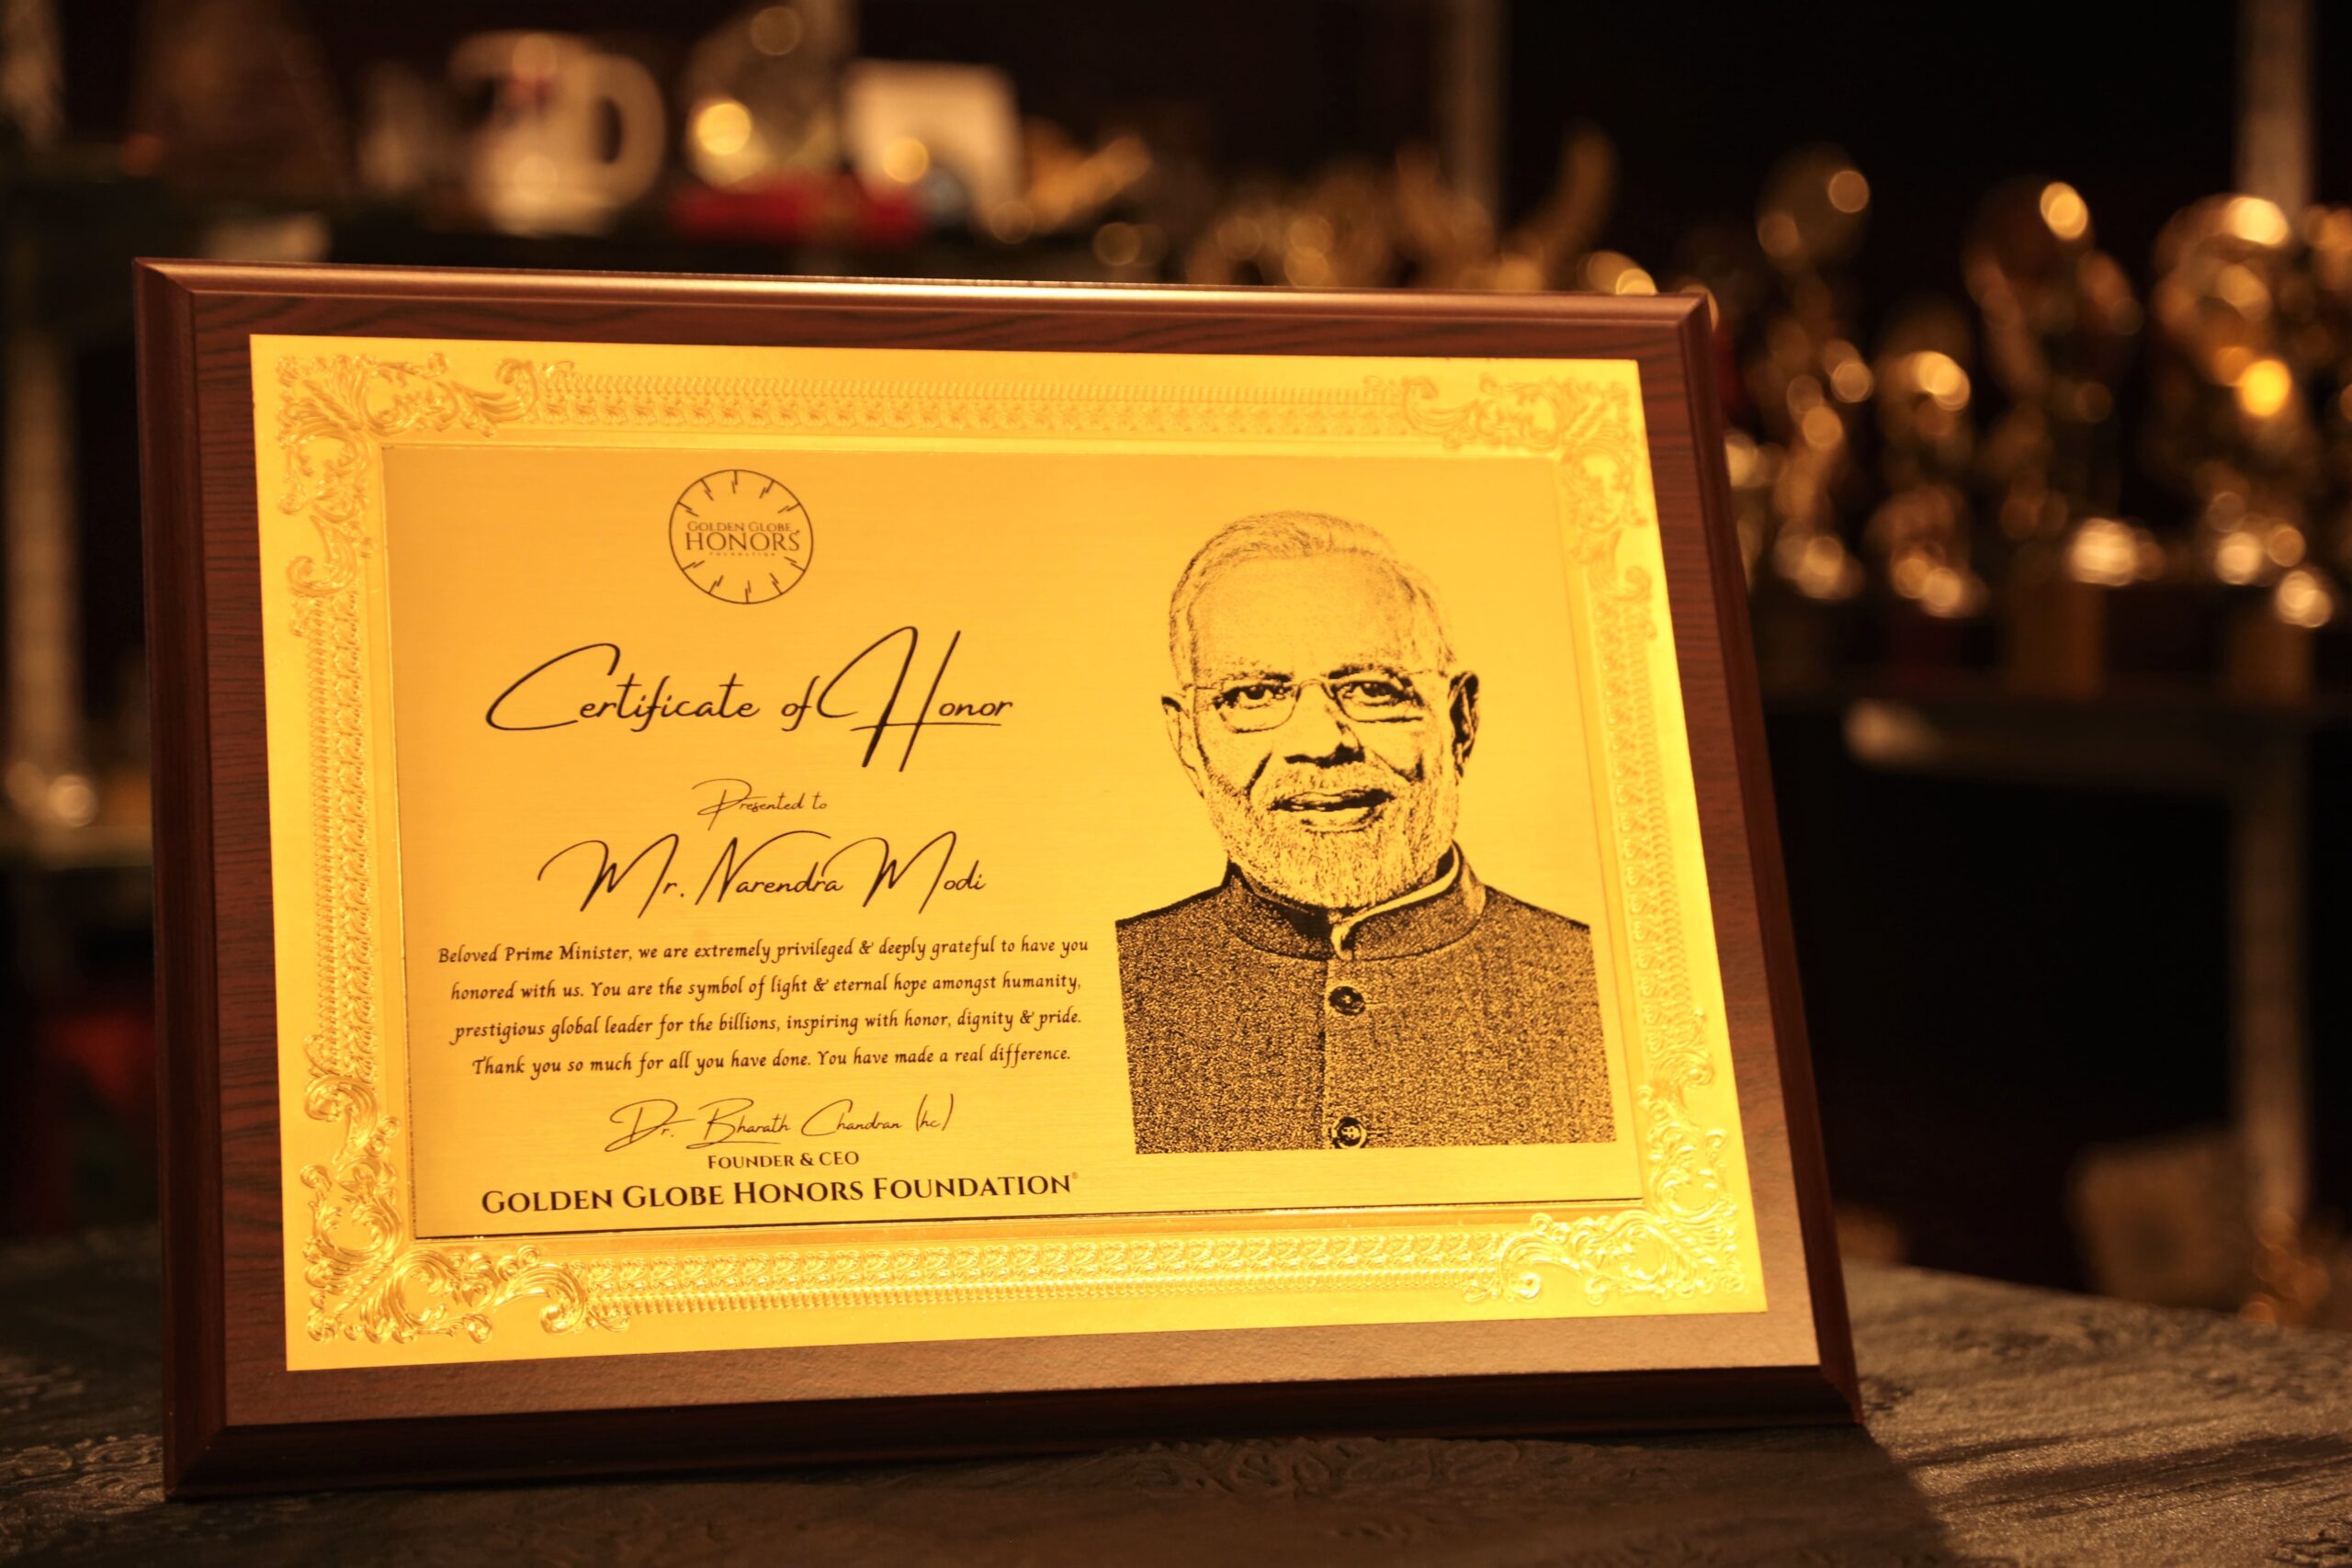 GOLDEN GLOBE
HONORS
FOUNDATION
Certificate of Honor
Presented to
Mr. Narendra Modi
Beloved Prime Minister, we are extremely privileged & deeply grateful to have you
honored with us. You are the symbol of light & eternal hope amongst humanity,
prestigious global leader for the billions, inspiring with honor, dignity & pride.
Thank you so much for all you have done. You have made a real difference.
Dr. Bharath Chandran (hc)
FOUNDER & CEO
GOLDEN GLOBE HONORS FOUNDATION®